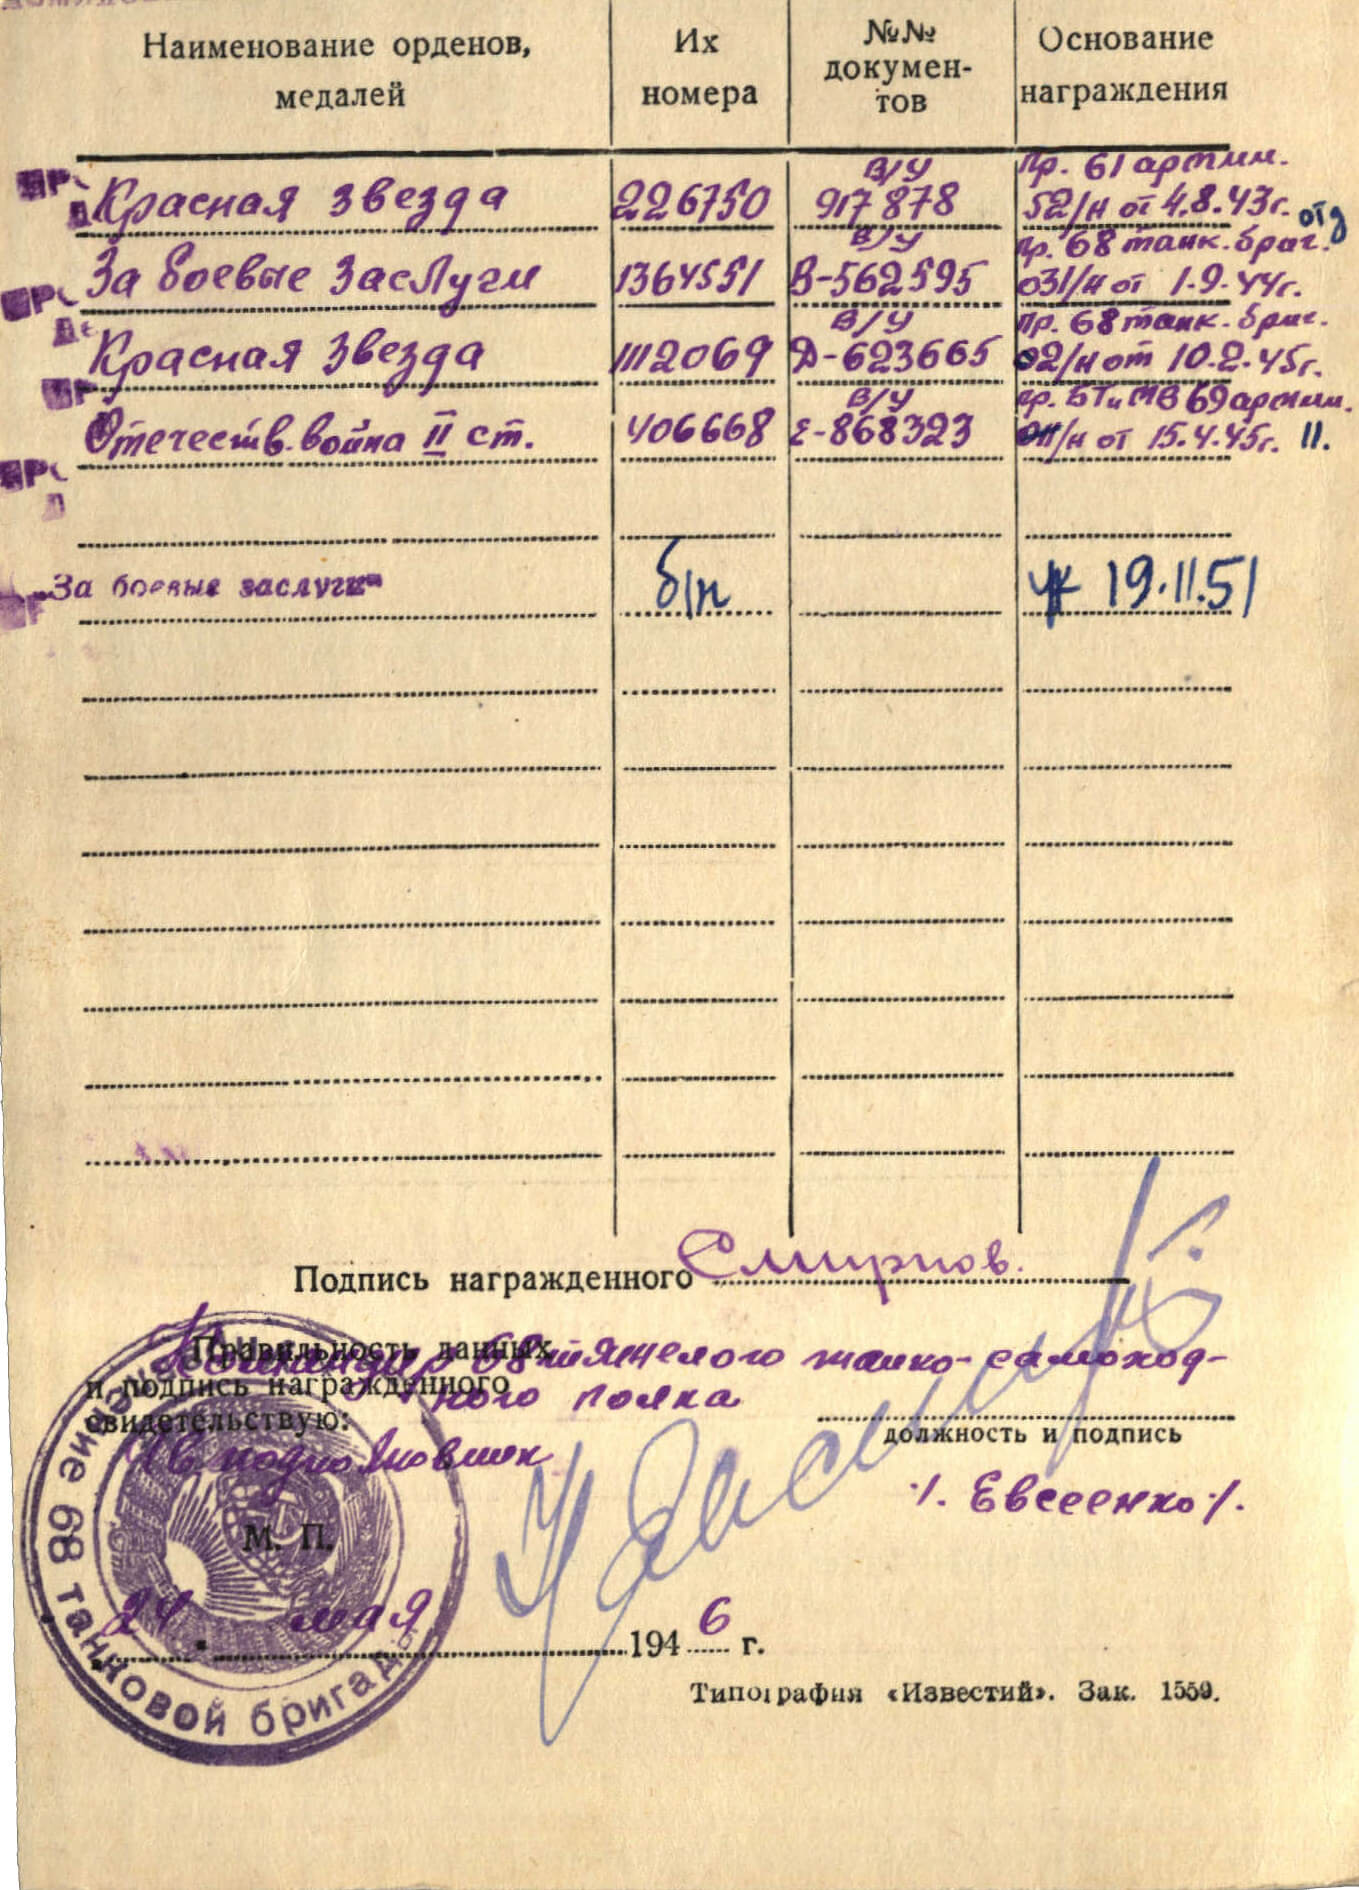 Наименование орденов, медалей
Их номера
№№ докумен-тов
Основание награждения
Пр. 61 армии.
В/У
Красная звезда 226750 917878 52/н от 4.8.43г.
отд
В/У Пр. 68 танк. бриг.
За боевые заслуги 1364551 В-562595 031/н от 1.9.44г.
В/У Пр. 68 танк. бриг.
Красная звезда 1112069 Д-623665 02/н от 10.2.45г.
В/У пр. БТиМВ 69 армии.
Отечеств. война II ст. 406668 Е-868323 /н от 15.4.45г. 11.
"За боевые заслуги" б/н 19.11.51
Подпись награжденного Смирнов.
Правильность данных
и подпись награжденного
свидетельствую:
Командир 68 тяжелого танко-самоход-
ного полка
должность и подпись
Гв подполковник
/. Евсеенко /.
М. П.
24 мая 1946 г.
68 танковой бригады
Типография «Известий». Зак. 1559.